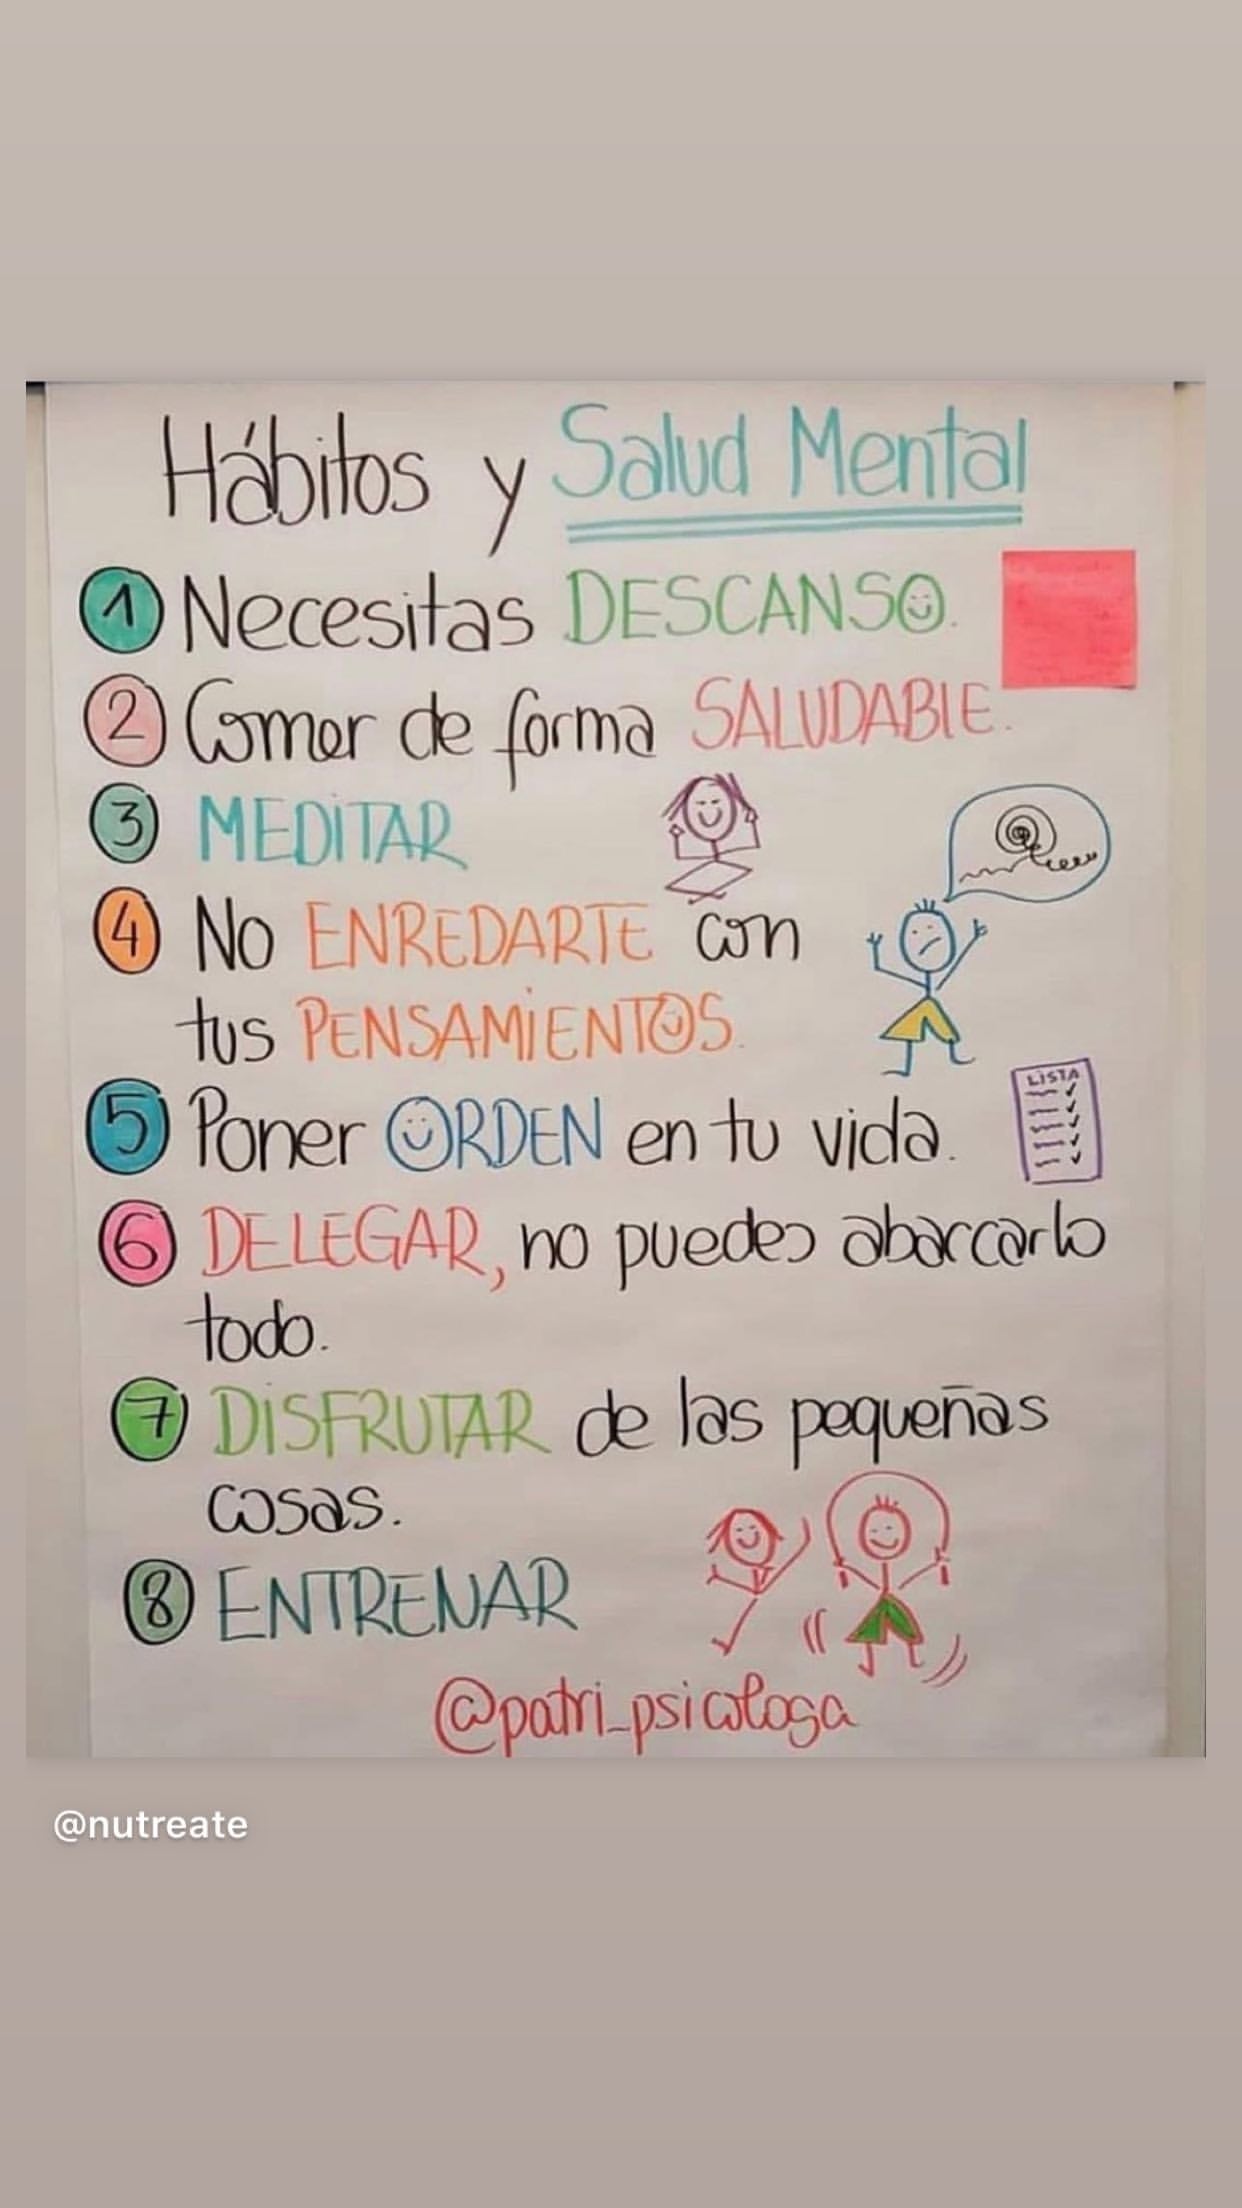 Hábitos y Salud Mental
1 Necesitas DESCANSO.
2 Comer de forma SALUDABLE.
3 MEDITAR
4 No ENREDARTE con
tus PENSAMIENTOS.
5 Poner ORDEN en tu vida.
LISTA
6 DELEGAR, no puedes abarcarlo
todo.
7 DISFRUTAR de las pequeñas
cosas.
8 ENTRENAR
@patri_psicologa
@nutreate